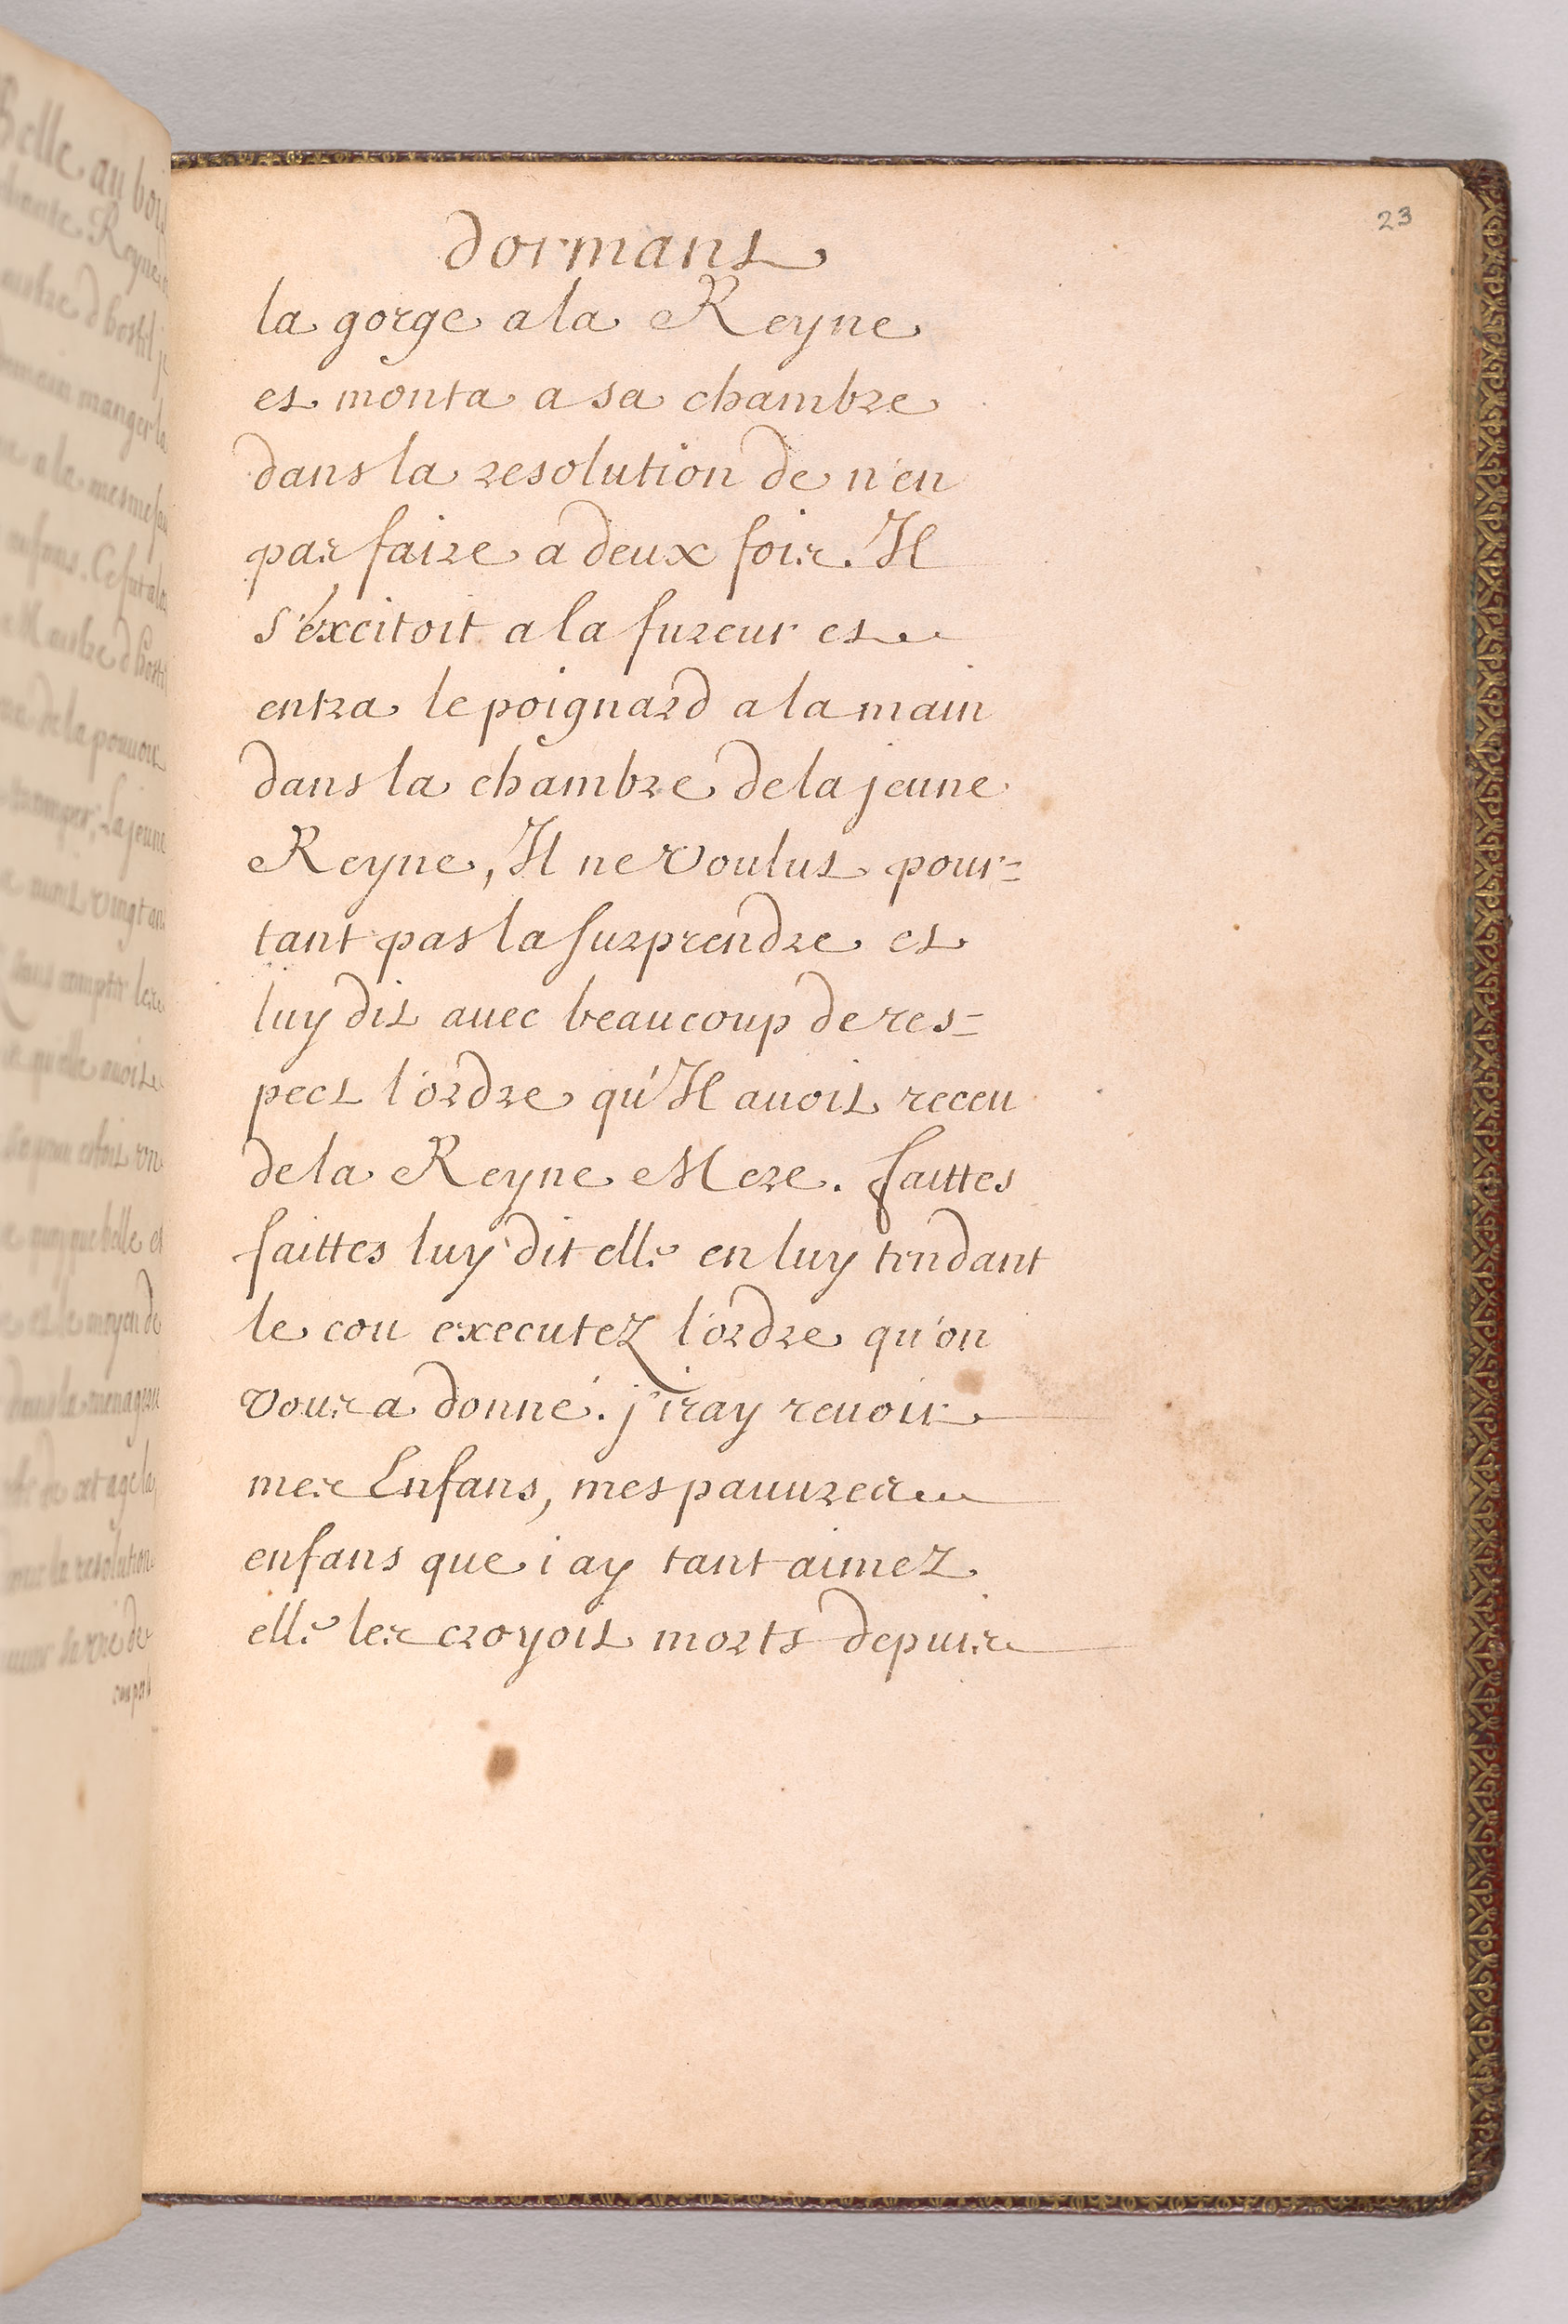 Belle au bois
23
dormant
la gorge a la Reyne
et monta a sa chambre
dans la resolution de n'en
pas faire a deux fois. Il
s'éxcitoit a la fureur et
entra le poignard a la main
dans la chambre de la jeune
Reyne, Il ne voulut pour=
tant pas la surprendre et
luy dit auec beaucoup de res=
pect l'ordre qu'Il auoit receu
de la Reyne Mere. faittes
faittes luy dit elle en luy tendant
le cou executez l'ordre qu'on
vous a donné. j'iray reuoir
mes Enfans, mes pauures
enfans que i ay tant aimez
elle les croyoit morts depuis
Reyne
maistre d'hostil
manger la
a la mesme
enfans. Ce fut
Maistre d'hostil
de la pouuoir
tromper, La jeune
vingt ans
sans compter les
qu'elle auoit
belle et
et le moyen de
dans la menagerie
de cet age la
la resolution
vie de